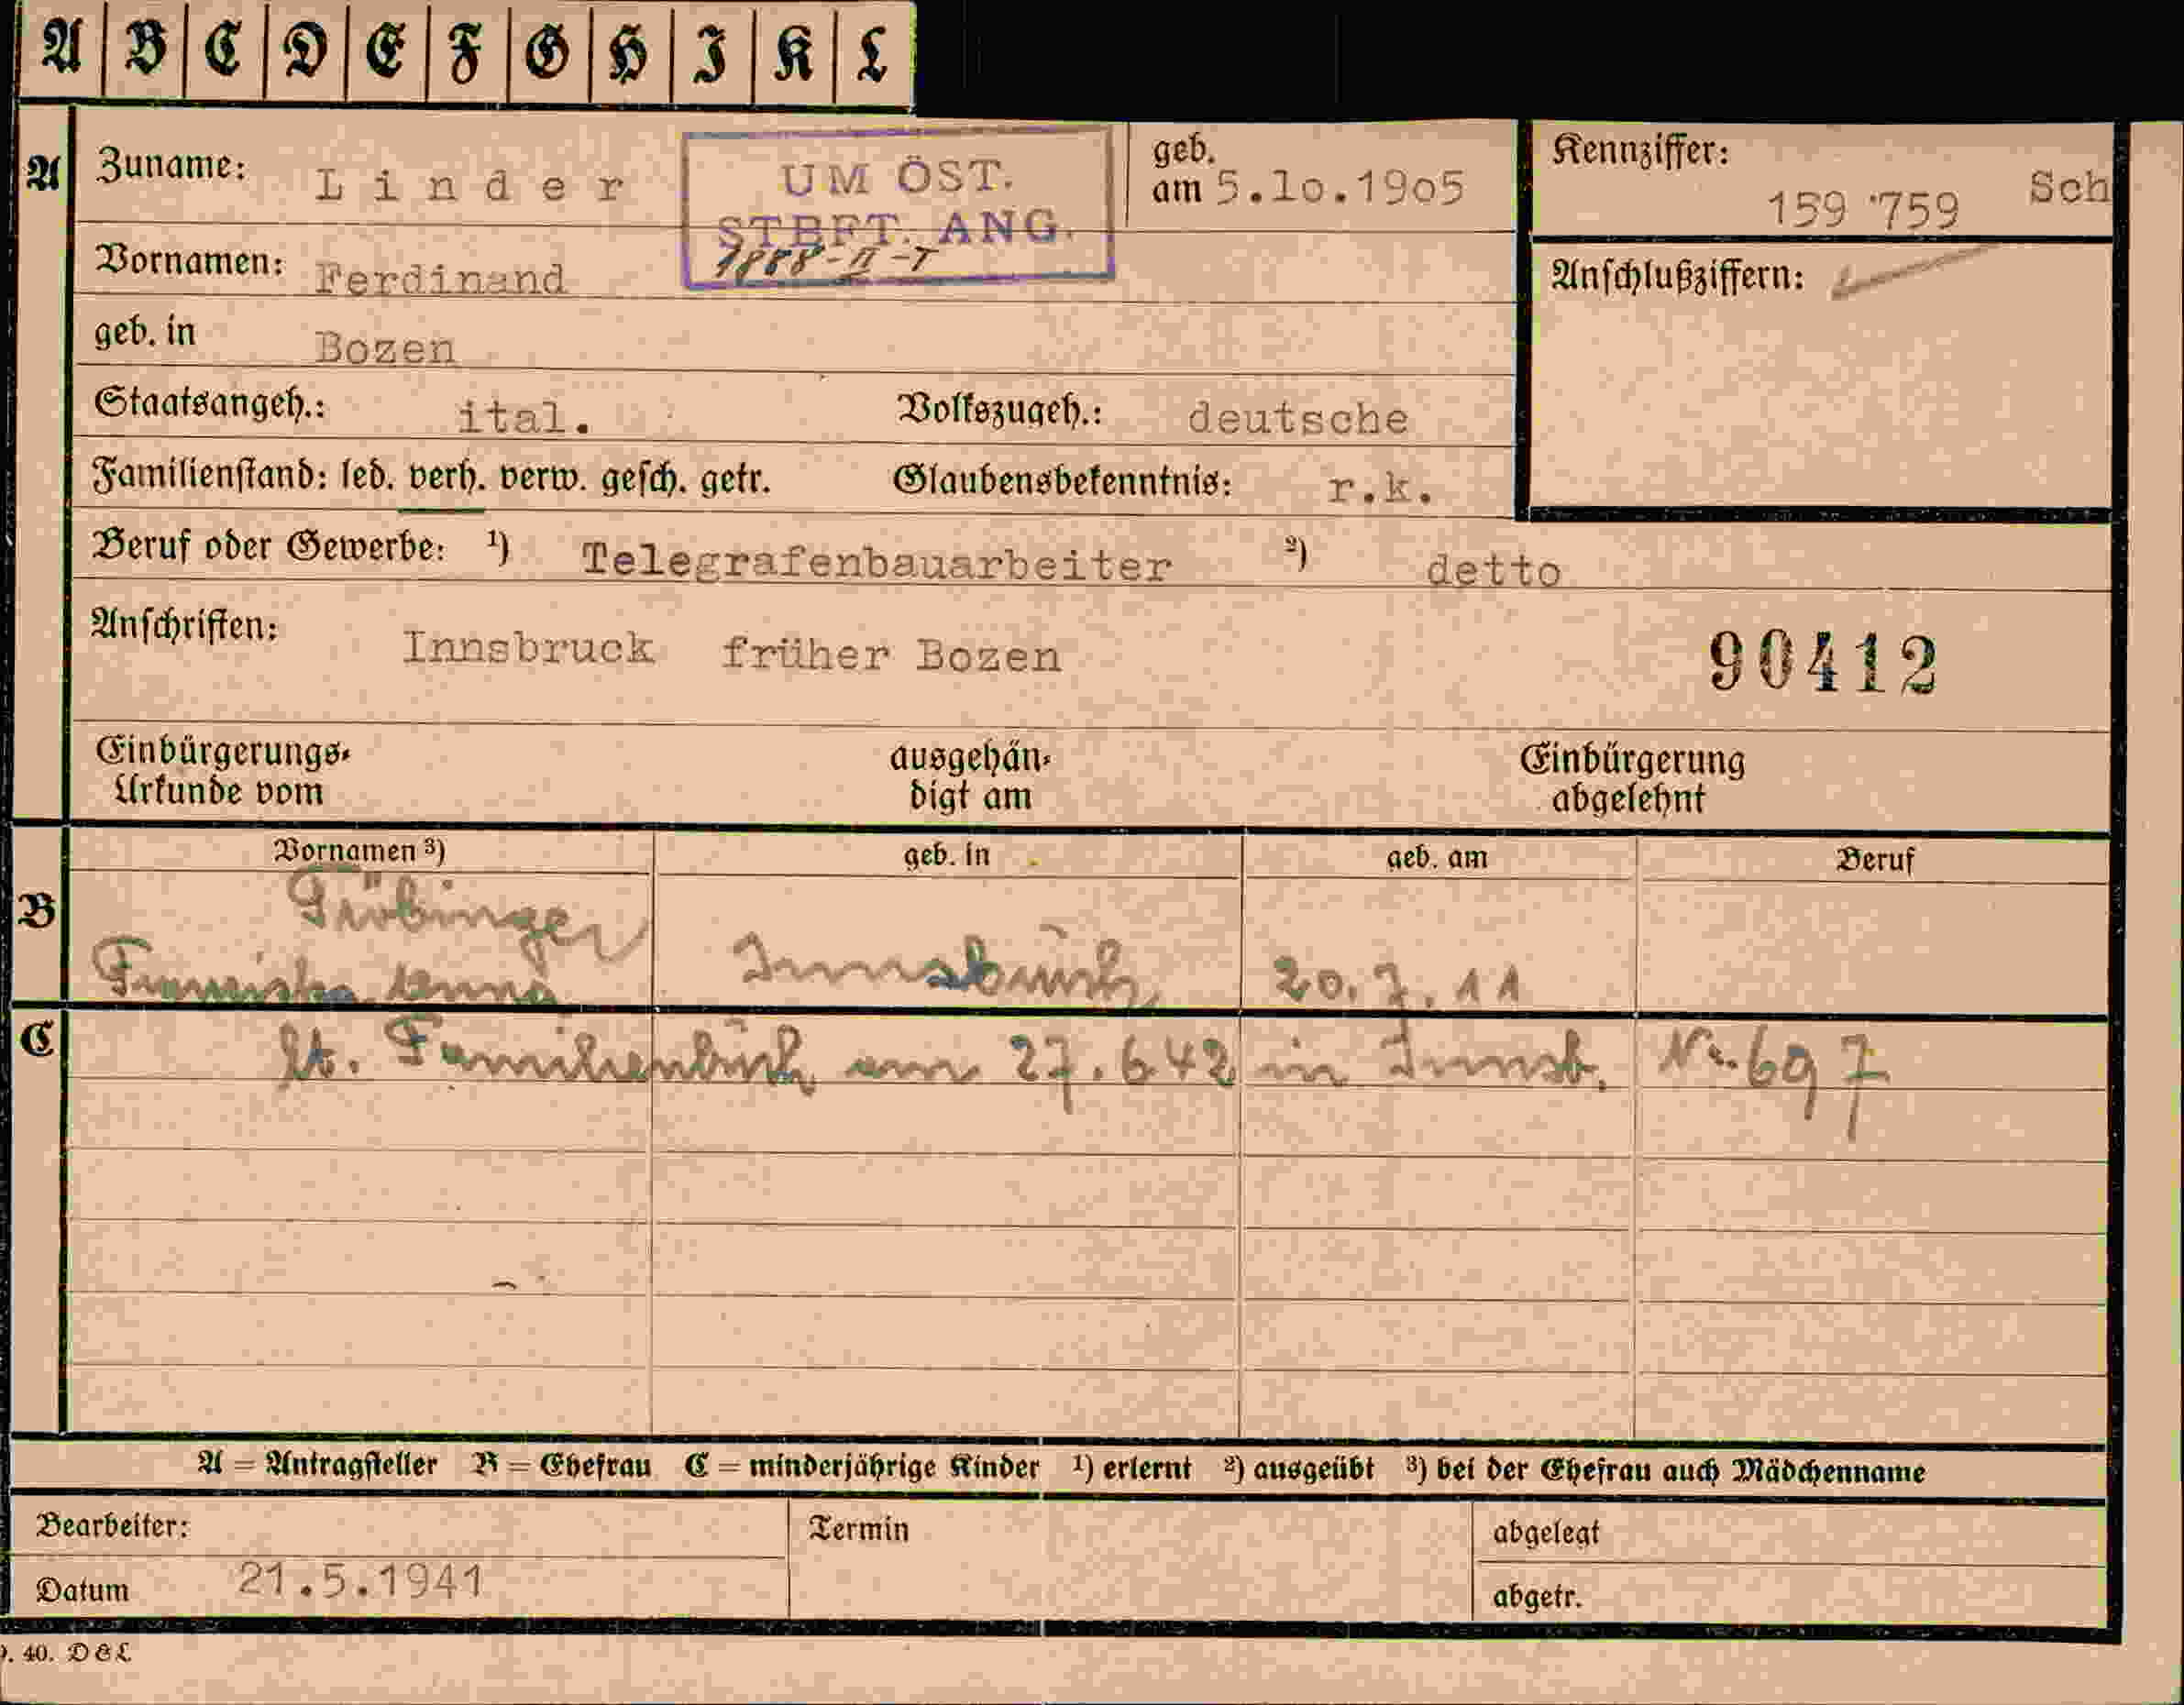 A B C D E F G H I K L
A Zuname: Linder geb. am 5.10.1905 Kennziffer: 159 759 Sch
UM ÖST.
STBFT. ANG.
1888-II-T
Vornamen: Ferdinand Anschlußziffern:
geb. in Bozen
Staatsangeh.: ital. Volkszugeh.: deutsche
Familienstand: led. verh. verw. gesch. getr. Glaubensbekenntnis: r.k.
Beruf oder Gewerbe: ¹) Telegrafenbauarbeiter ²) detto
Anschriften: Innsbruck früher Bozen 90412
Einbürgerungs- ausgehän- Einbürgerung
Urkunde vom digt am abgelehnt
Vornamen ³) geb. in geb. am Beruf
B
Franziska Anna Innsbruck 20.7.11
C lt. Familienbuch am 27.6.42 in Innsb. Nr. 697
A = Antragsteller B = Ehefrau C = minderjährige Kinder ¹) erlernt ²) ausgeübt ³) bei der Ehefrau auch Mädchenname
Bearbeiter: Termin abgelegt
Datum 21.5.1941 abgetr.
40. D & L